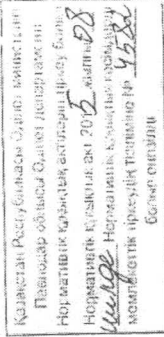 Қазақстан Республикасы Әділет министрлігі
Павлодар облысы Әділет департаменті
Нормативтік құқықтық актілерді тіркеу бөлімі
Нормативтік құқықтық акт 2015 жылғы 08
шілде Нормативтік құқықтық актілерді
мемлекеттік тіркеудің тізіліміне № 4582
болып енгізілді